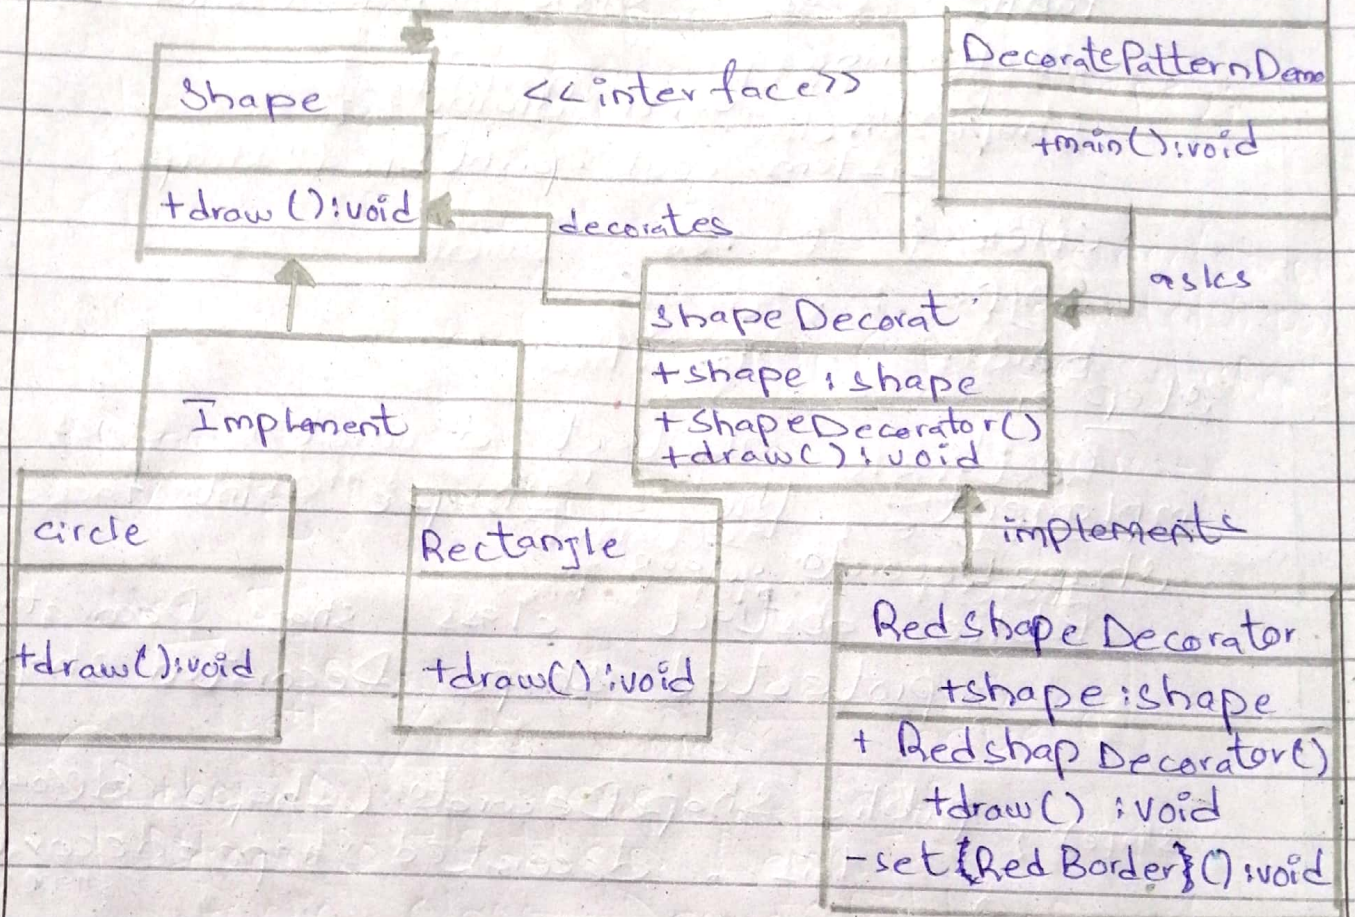 Shape
+draw():void
<<interface>>
DecoratePatternDemo
+main():void
decorates
asks
shape Decorat
+shape : shape
+ShapeDecorator()
+draw() : void
Implement
circle
+draw():void
Rectangle
+draw() : void
implements
Red shape Decorator
+shape : shape
+ Redshap Decorator()
+draw() : void
-set{Red Border}() : void